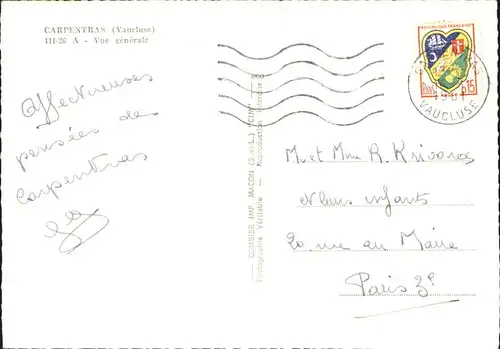 CARPENTRAS (Vaucluse)
111-26 A - Vue générale
Affectueuses
pensées de
Carpentras
COMBIER IMP. MACON (S.-&-L.) "CIM"
Photographie Véritable - Reproduction Interdite
REPUBLIQUE FRANÇAISE
0,15
VAUCLUSE
Mr et Mme R. Krivora
et leurs enfants
20 rue au Maire
Paris 3e